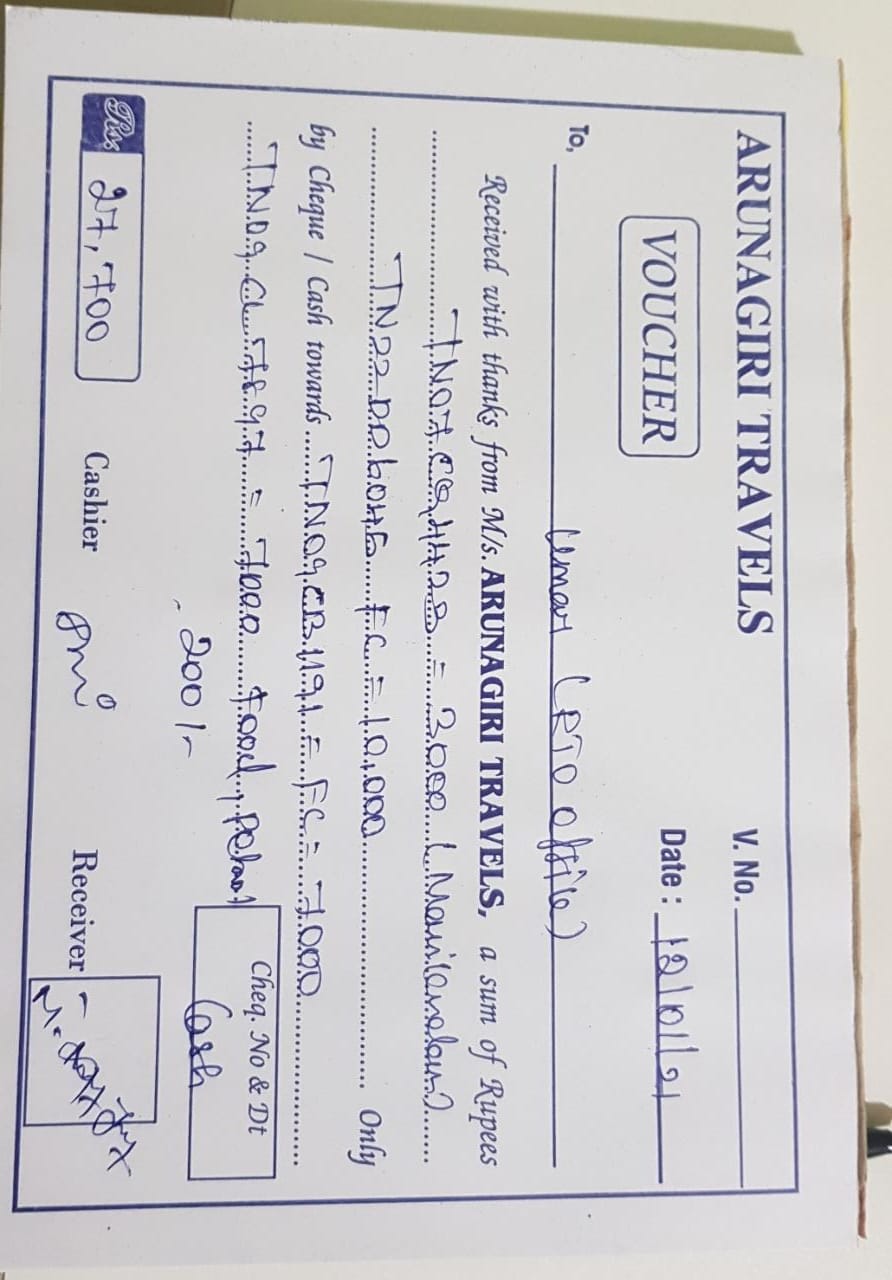 ARUNAGIRI TRAVELS
V. No.
VOUCHER
Date : 12/01/21
To, Umar (RTO office)
Received with thanks from M/s. ARUNAGIRI TRAVELS, a sum of Rupees
TN07CQ4428 = 3000 (Manikandan)
TN22DD6045 FC = 10,000 Only
by Cheque / Cash towards TN09CB1191 = FC = 7000
TN09CL5897 = 7000 Food, Petrol
200/-
Cheq. No & Dt
Cash
Rs. 27,700
Cashier
Receiver